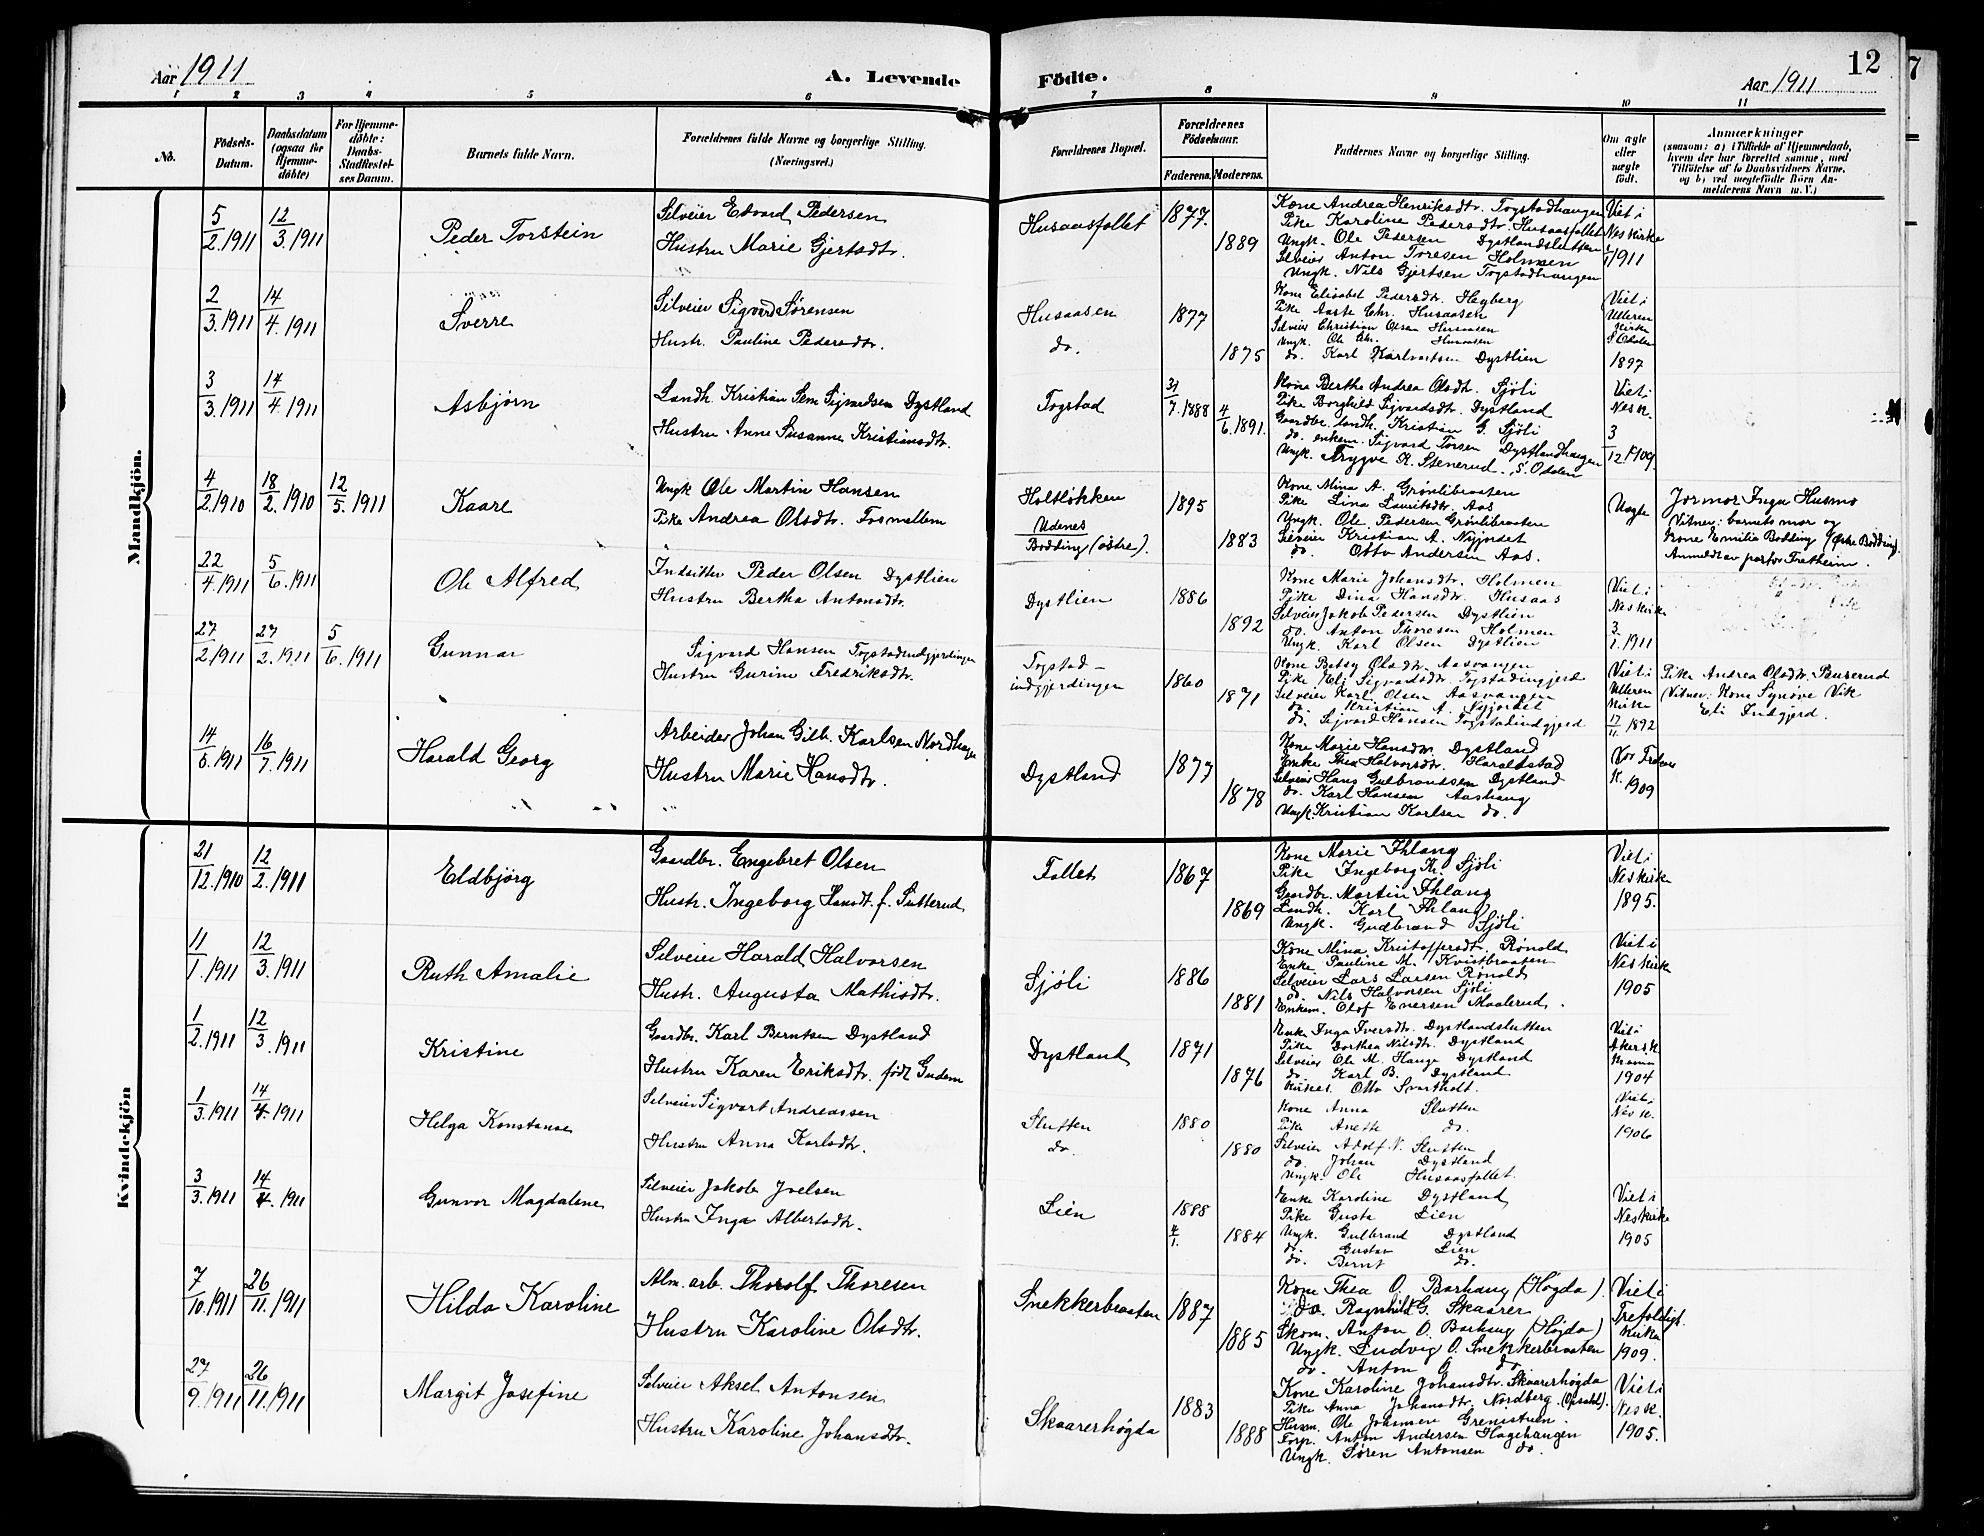 Aar 1911
A. Levende Födte.
Aar 1911
12
7
1 2 3 4 5 6 7 8 9 10 11
No.
Födsels-Datum.
Daabsdatum (ogsaa for Hjemme-döbte)
For Hjemme-döbte: Daabs-Stadfæstel-ses Datum.
Barnets fulde Navn.
Forældrenes fulde Navne og borgerlige Stilling. (Næringsvei.)
Forældrenes Bopæl.
Forældrenes Födselsaar.
Faderens. Moderens.
Faddernes Navne og borgerlige Stilling.
Om ægte eller uægte födt.
Anmærkninger
(saasom: a) i Tilfælde af Hjemmedaab,
hvem der har forrettet samme, med
Tilföielse af to Daabsvidners Navne,
og b) ved uægtefödte Börn An-
melderens Navn m. V.)
Mandkjön.
5/2.1911 12/3.1911 Peder Torstein
Selveier Edvard Pedersen
Hustru Marie Gjertsdtr.
Husaasfallet 1877. 1889
Kone Andrea Henriksdtr. Togstadhaugen
Pike Karoline Pedersdtr. Husaasfallet
Ungk. Ole Pedersen Dystlandslutten
Selveier Anton Toresen Holmen
Ungk. Nils Gjertsen Togstadhaugen
Viet i
Neskirke
1911
2/3.1911 14/4.1911 Sverre
Selveier Sigvard Sørensen
Hustr. Pauline Pedersdtr.
Husaasen
do.
1877 1875
Kone Elisabet Pedersdtr. Hegberg
Pike Aaste Chr. Husaasen
Selveier Christian Olsen Husaasen
Ungk. Ole Chr. Husaasen
do. Karl Karlvartsen Dystlien
Viet i
Ulleren
Kirke
S Odalen
1897
3/3.1911 14/4.1911 Asbjørn
Landh. Kristian Sem Sigvardsen Dystland
Hustru Anne Susanne Kristiansdtr.
Togstad 31/7.1888 4/6.1891.
Kone Berthe Andrea Olsdtr. Sjöli
Pike Borghild Sigvardsdtr. Dystland
Gaardbr. landh. Kristian G. Sjöli
do. enkem. Sigvard Torsen Dystlandhaugen
Ungk. Trygve K. Stenerud. S. Odalen
Viet i
Nesk.
3/12 1909.
4/2.1910 18/2.1910 12/5.1911 Kaare
Ungk Ole Martin Hansen
Pike Andrea Olsdtr. Fosmellem
Holtløkken
Udenes
Bødding (østre).
1895 1883
Kone Mina A. Grønlibraaten
Pike Lina Lauritsdtr. Aas
Ungk. Ole Pedersen Grønlibraaten
Selveier Kristian A. Nyjordet
do. Otto Andersen Aas.
Uægte
Jormor Inga Husmo
Vitner: barnets mor og
Kone Emilie Bødding (østre Bødding).
Anmeldt av pastor Fretheim.
22/4.1911 5/6.1911 Ole Alfred
Indsitter Peder Olsen Dystlien
Hustru Bertha Antonsdtr.
Dystlien 1886 1892
Kone Marie Johansdtr. Holmen
Pike Dina Hansdtr. Husaas
Selveier Jakob Pedersen Dystlien
do. Anton Thoresen Holmen
Ungk. Karl Olsen Dystlien
Viet i
Neskirke
3/1.1911
27/2.1911 27/2.1911 5/6.1911 Gunnar
Sigvard Hansen Togstadindgjerdingen
Hustru Gurine Fredriksdtr.
Togstad-
indgjerdingen
1860 1871
Kone Betsy Olsdtr. Aasvangen
Pike Eli Sigvardsdtr. Togstadingjerd
Selveier Karl Olsen Aasvangen
do. Kristian A. Nyjordet
do. Sigvard Hansen Togstadindgjerd
Viet i
Ulleren
Kirke
17/11.1892
Pike Andrea Olsdtr. Buserud
(Vitner: Kone Synøve Vik
Eli Indgjerd.
14/6.1911 16/7.1911 Harald Georg
Arbeider Johan Gilb. Karlsen Nordhagen
Hustru Marie Hansdtr.
Dystland 1877 1878
Kone Marie Hansdtr. Dystland
Enke Thea Halvorsdtr. Haraldstad
Selveier Hans Gulbrandsen Dystland
do. Karl Hansen Aashaug
Ungk. Kristian Karlsen do.
1909
Kvindekjön
21/12.1910 12/2.1911 Eldbjörg
Gaardbr. Engebret Olsen
Hustr. Ingeborg Hansdt. f. Sutterud
Fallet 1867 1869
Kone Marie Ihlang
Pike Ingeborg K. Sjöli
Gardbr. Martin Ihlang
Landh. Karl Ihlang
Ungk. Gudbrand Sjöli
Viet i
Neskirke
1895.
11/1.1911 12/3.1911 Ruth Amalie
Selveier Harald Halvorsen
Hustr. Augusta Mathisdtr.
Sjöli 1886 1881
Kone Mina Kristoffersdtr. Rönold
Enke Pauline M. Kvistbraaten
Selveier Lars Larsen Rönold
do. Nils Halvorsen Sjöli
Enkem. Olof Enersen Maalerud.
Viet i
Neskirke
1905
1/2.1911 12/3.1911 Kristine
Gaardbr. Karl Berntsen Dystland
Hustru Karen Eriksdtr. født Gudem
Dystland 1871 1876
Enke Inga Iversdtr. Dystlandslutten
Pike Dorthea Nilsdtr. Dystland
Selveier Ole M. Hauge Dystland
do. Karl B. Dystland
Otto Svartholt.
Viet i
Akersk.
1904
1/3.1911 14/4.1911 Helga Konstanse
Selveier Sigvart Andreassen
Hustru Anna Karlsdtr.
Slutten
do.
1880 1880
Kone Anna Slutten
Pike Anette do.
Selveier Adolf N. Slutten
do. Johan Dystland
Ungk. Ole Husaasfallet.
Viet i
Nesk.
1906
3/3.1911 14/4.1911 Gunvor Magdalene
Selveier Jakob Joelsen
Hustru Inga Albertsdtr.
Lien 1888 4/1. 1884
Enke Karoline Dystland
Pike Gusta Lien
Ungk. Gulbrand Dystland
do. Gustav Lien
do. Bernt do.
Viet i
Neskirke
1905
7/10.1911 26/11.1911 Hilda Karoline
Alm. arb. Thorolf Thoresen
Hustru Karoline Olsdtr.
Snekkerbraaten 1887 1885
Kone Thea O. Barhaug (Høgda).
do. Ragnhild G. Skaarer
Skom. Anton O. Barhaug (Høgda)
Ungk. Ludvig O. Snekkerbraaten
do. Anton O. do.
Viet i
Trefoldigh.
Kirke
1909.
27/9.1911 26/11.1911 Margit Josefine
Selveier Aksel Antonsen
Hustru Karoline Johansdtr.
Skaarerhögda 1883 1888
Kone Karoline Johansdtr. Skaarerhögda
Pike Anna Johansdtr. Nordberg (Opsahl).
Husm. Ole Johansen Grenistuen.
Forp. Anton Andersen Hagehaugen
Ungk. Søren Antonsen do.
Viet i
Nesk.
1905.